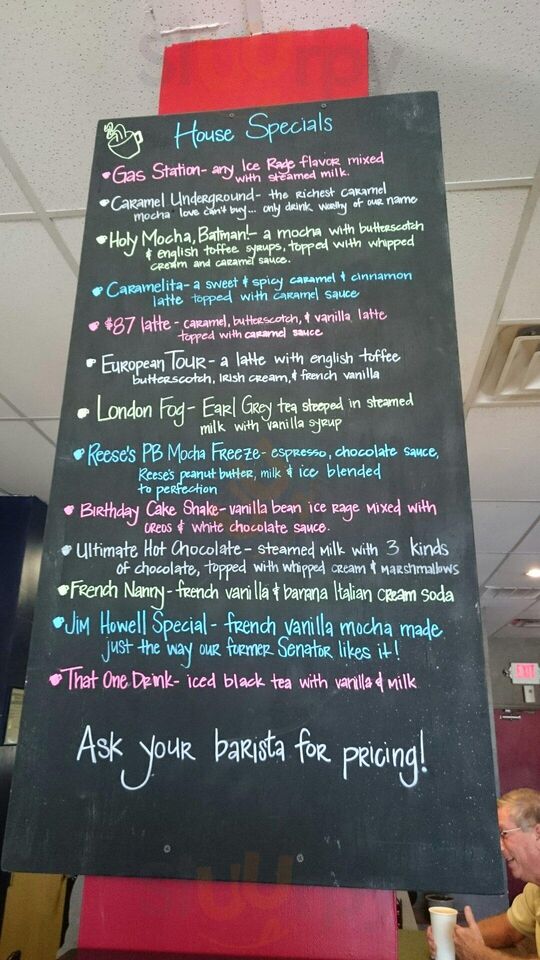 House Specials
Gas Station - any Ice Rage flavor mixed
with steamed milk.
Caramel Underground - the richest caramel
mocha love can't buy... only drink worthy of our name
Holy Mocha, Batman! - a mocha with butterscotch
& english toffee syrups, topped with whipped
cream and caramel sauce.
Caramelita - a sweet & spicy caramel & cinnamon
latte topped with caramel sauce
$87 latte - caramel, butterscotch, & vanilla latte
topped with caramel sauce
European Tour - a latte with english toffee
butterscotch, Irish cream, & french vanilla
London Fog - Earl Grey tea steeped in steamed
milk with vanilla syrup
Reese's PB Mocha Freeze - espresso, chocolate sauce,
Reese's peanut butter, milk & ice blended
to perfection
Birthday Cake Shake - vanilla bean ice rage mixed with
oreos & white chocolate sauce.
Ultimate Hot Chocolate - steamed milk with 3 kinds
of chocolate, topped with whipped cream & marshmallows
French Nanny - french vanilla & banana Italian cream soda
Jim Howell Special - french vanilla mocha made
just the way our former Senator likes it!
That One Drink - iced black tea with vanilla & milk
Ask your barista for pricing!
EXIT